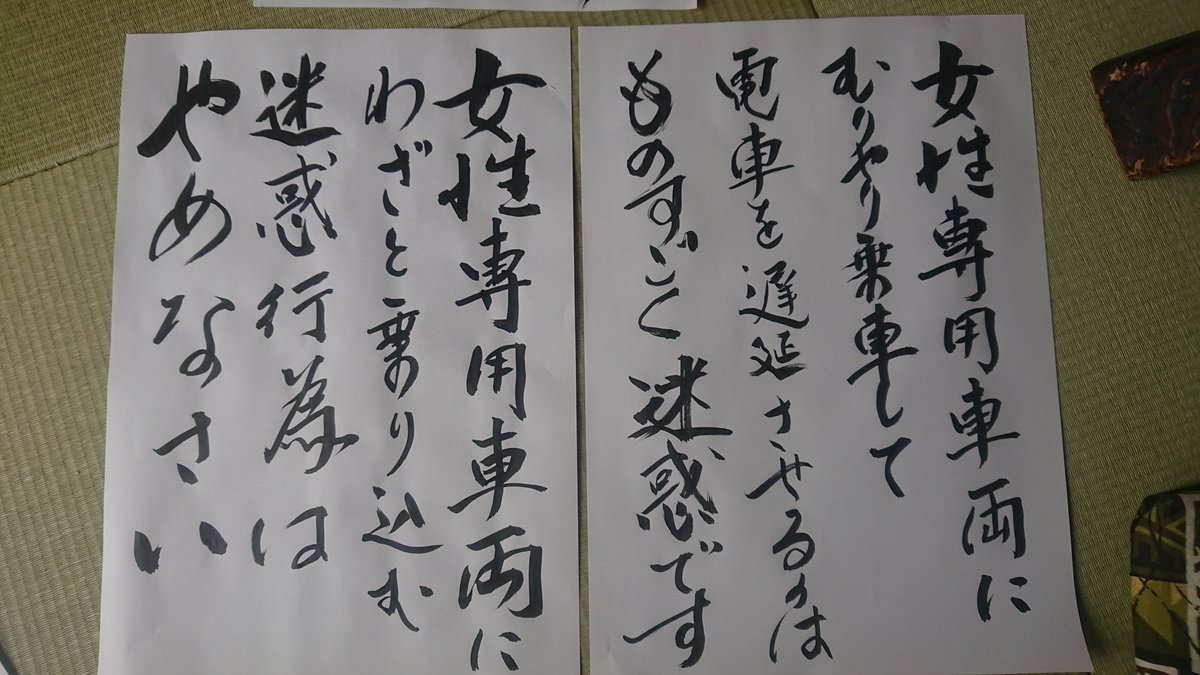 女性専用車両に
むりやり乗車して
電車を遅延させるのは
ものすごく迷惑です
女性専用車両に
わざと乗り込む
迷惑行為は
やめなさい